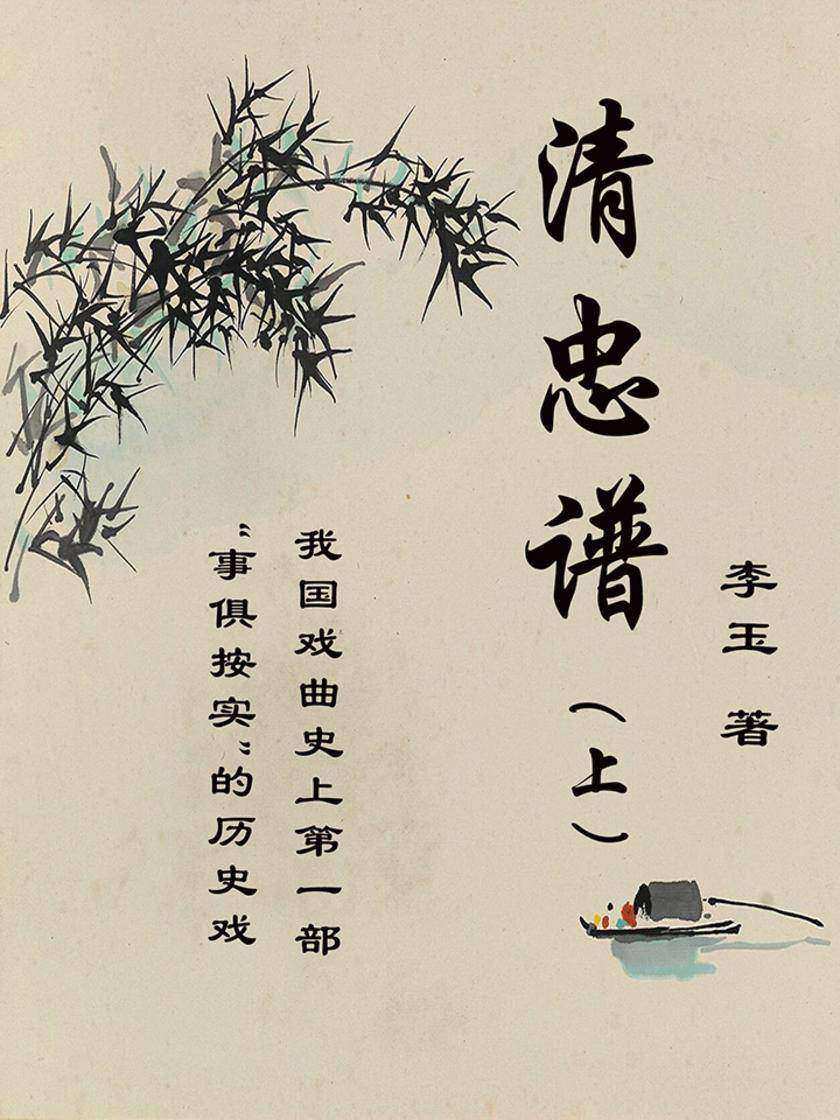 李玉 著
清忠谱（上）
我国戏曲史上第一部
“事俱按实”的历史戏